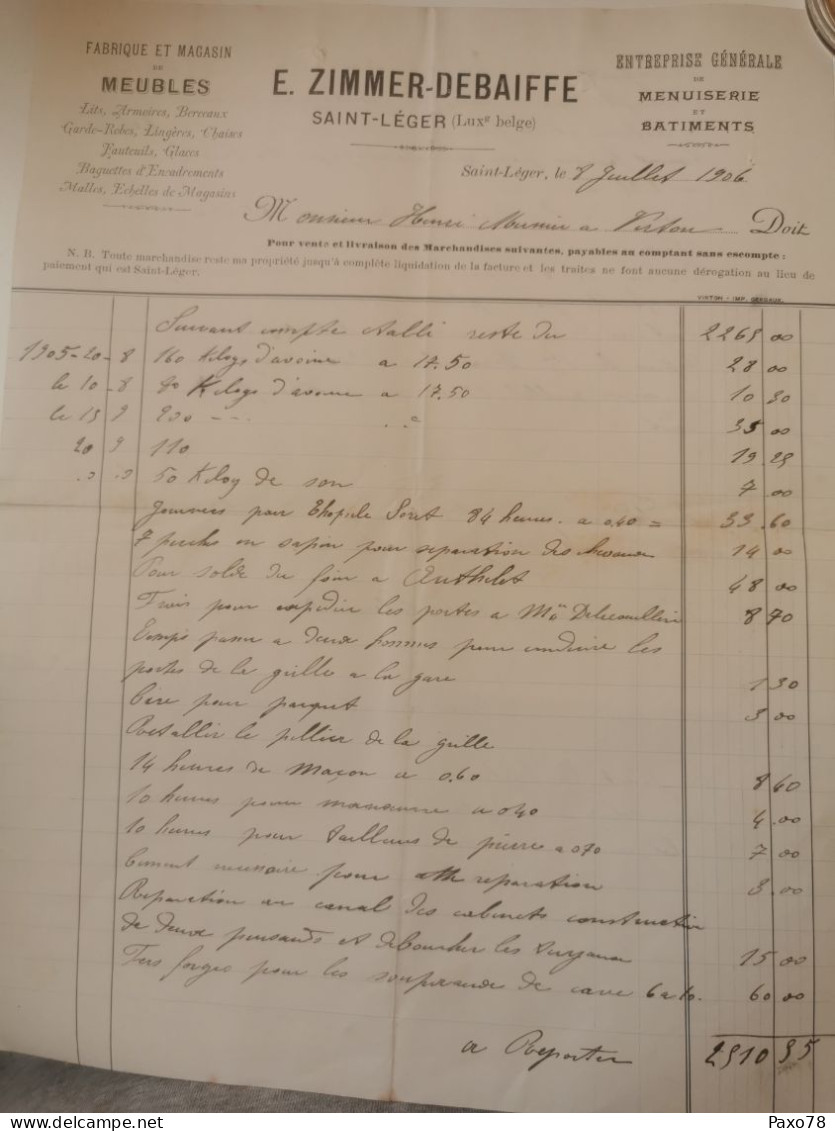 FABRIQUE ET MAGASIN
DE
MEUBLES
Lits, Armoires, Berceaux
Garde-Robes, Lingères, Chaises
Fauteuils, Glaces
Baguettes d'Encadrements
Malles, Echelles de Magasins
E. ZIMMER-DEBAIFFE
SAINT-LÉGER (Luxg belge)
ENTREPRISE GÉNÉRALE
DE
MENUISERIE
ET
BATIMENTS
Saint-Léger, le 8 Juillet 1906
Monsieur Henri a Virton Doit
Pour vente et livraison des Marchandises suivantes, payables au comptant sans escompte :
N. B. Toute marchandise reste ma propriété jusqu'à complète liquidation de la facture et les traites ne font aucune dérogation au lieu de
paiement qui est Saint-Léger.
VIRTON - IMP.
Suivant compte établi reste du 2265 00
1905-20-8 160 Kilogs d'avoine a 17.50 28 00
le 10-8 Kilogs d'avoine a 17.50 10 50
le 15 9 200 -- 35 00
20 9 110 19 25
50 Kilog de son 7 00
Journees pour 84 heures a 0,40 = 33.60
7 perches en sapin pour reparation des 14 00
Pour solde du four a 48 00
Frais pour expedier les portes a 8 70
Temps passe a deux hommes pour conduire les
portes de la grille a la gare 1 50
Cire pour parquet 3 00
Retablir le pillier de la grille
14 heures de Maçon a 0.60 8 40
10 heures pour manoeuvre a 040 4.00
10 heures pour tailleurs de pierre a 070 7 00
Ciment necessaire pour reparation 3.00
Reparation au canal des cabinets construction
de deux et deboucher les 15 00
Fers forges pour les de cave 6 a 10. 60 00
a Reporter 2510 95
Paxo78